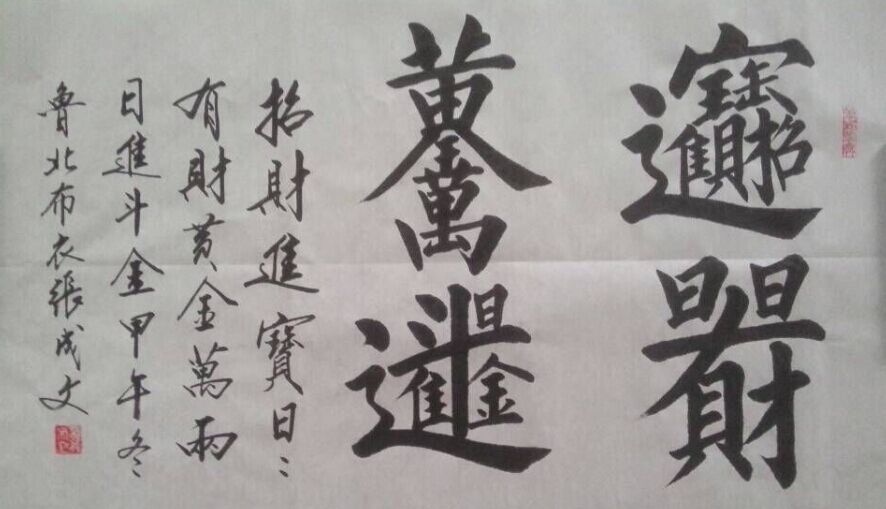 招財進寶
日日有財
黃金萬兩
日進斗金
招財進寶日〻
有財黃金萬兩
日進斗金甲午冬
魯北布衣張成文